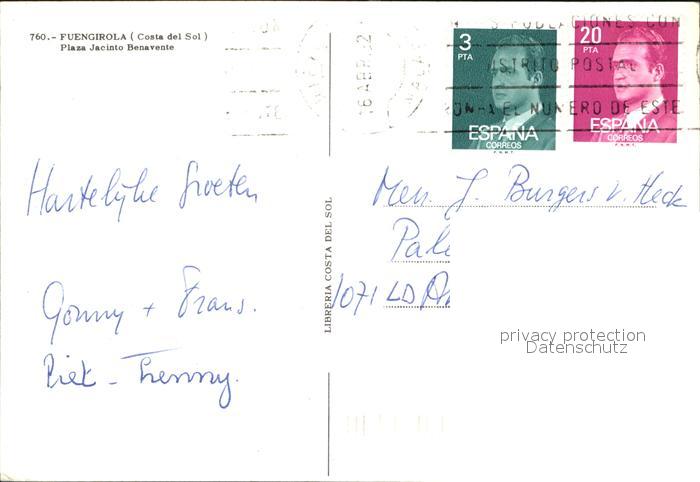 760.- FUENGIROLA ( Costa del Sol )
Plaza Jacinto Benavente
Hartelijke Groeten
Gonny + Frans.
Piet - Trenny.
LIBRERIA COSTA DEL SOL
16 ABR
S POBLACIONES CON
ISTRITO POSTAL
ONGA EL NUMERO DE ESTE
3 PTA
ESPAÑA
CORREOS
F.N.M.T.
20 PTA
ESPAÑA
CORREOS
F.N.M.T.
J. Burgers v. Heck
Pale
1071 LD
privacy protection
Datenschutz